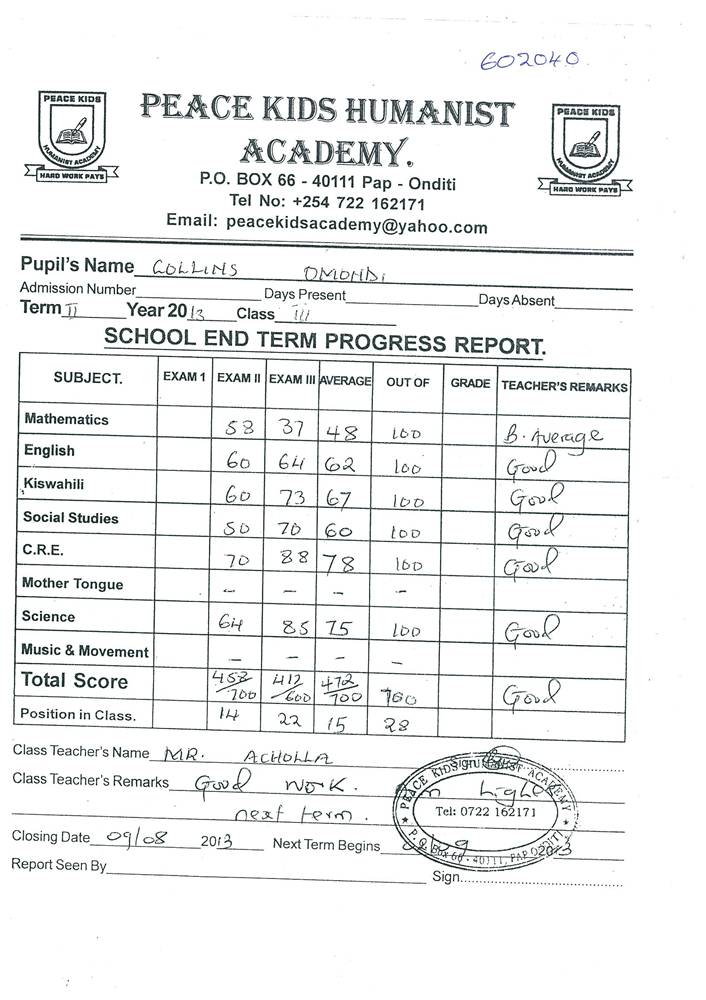 602040
PEACE KIDS
HUMANIST ACADEMY
HARD WORK PAYS
PEACE KIDS HUMANIST
ACADEMY.
PEACE KIDS
HUMANIST ACADEMY
HARD WORK PAYS
P.O. BOX 66 - 40111 Pap - Onditi
Tel No: +254 722 162171
Email: peacekidsacademy@yahoo.com
Pupil's Name COLLINS OMONDI
Admission Number Days Present Days Absent
Term II Year 2013 Class III
SCHOOL END TERM PROGRESS REPORT.
SUBJECT. EXAM 1 EXAM II EXAM III AVERAGE OUT OF GRADE TEACHER'S REMARKS
Mathematics 58 37 48 100 B. Average
English 60 64 62 100 Good
Kiswahili 60 73 67 100 Good
Social Studies 50 70 60 100 Good
C.R.E. 70 88 78 100 Good
Mother Tongue - - - -
Science 64 85 75 100 Good
Music & Movement - - - -
Total Score 458/700 412/600 472/700 700 Good
Position in Class. 14 22 15 28
Class Teacher's Name MR. ACHOLLA Sign
Class Teacher's Remarks Good work.
next term.
PEACE KIDS HUMANIST ACADEMY
Tel: 0722 162171
P.O. Box 66 - 40111, PAP ONDITI
Closing Date 09/08 2013 Next Term Begins 2013
Report Seen By Sign